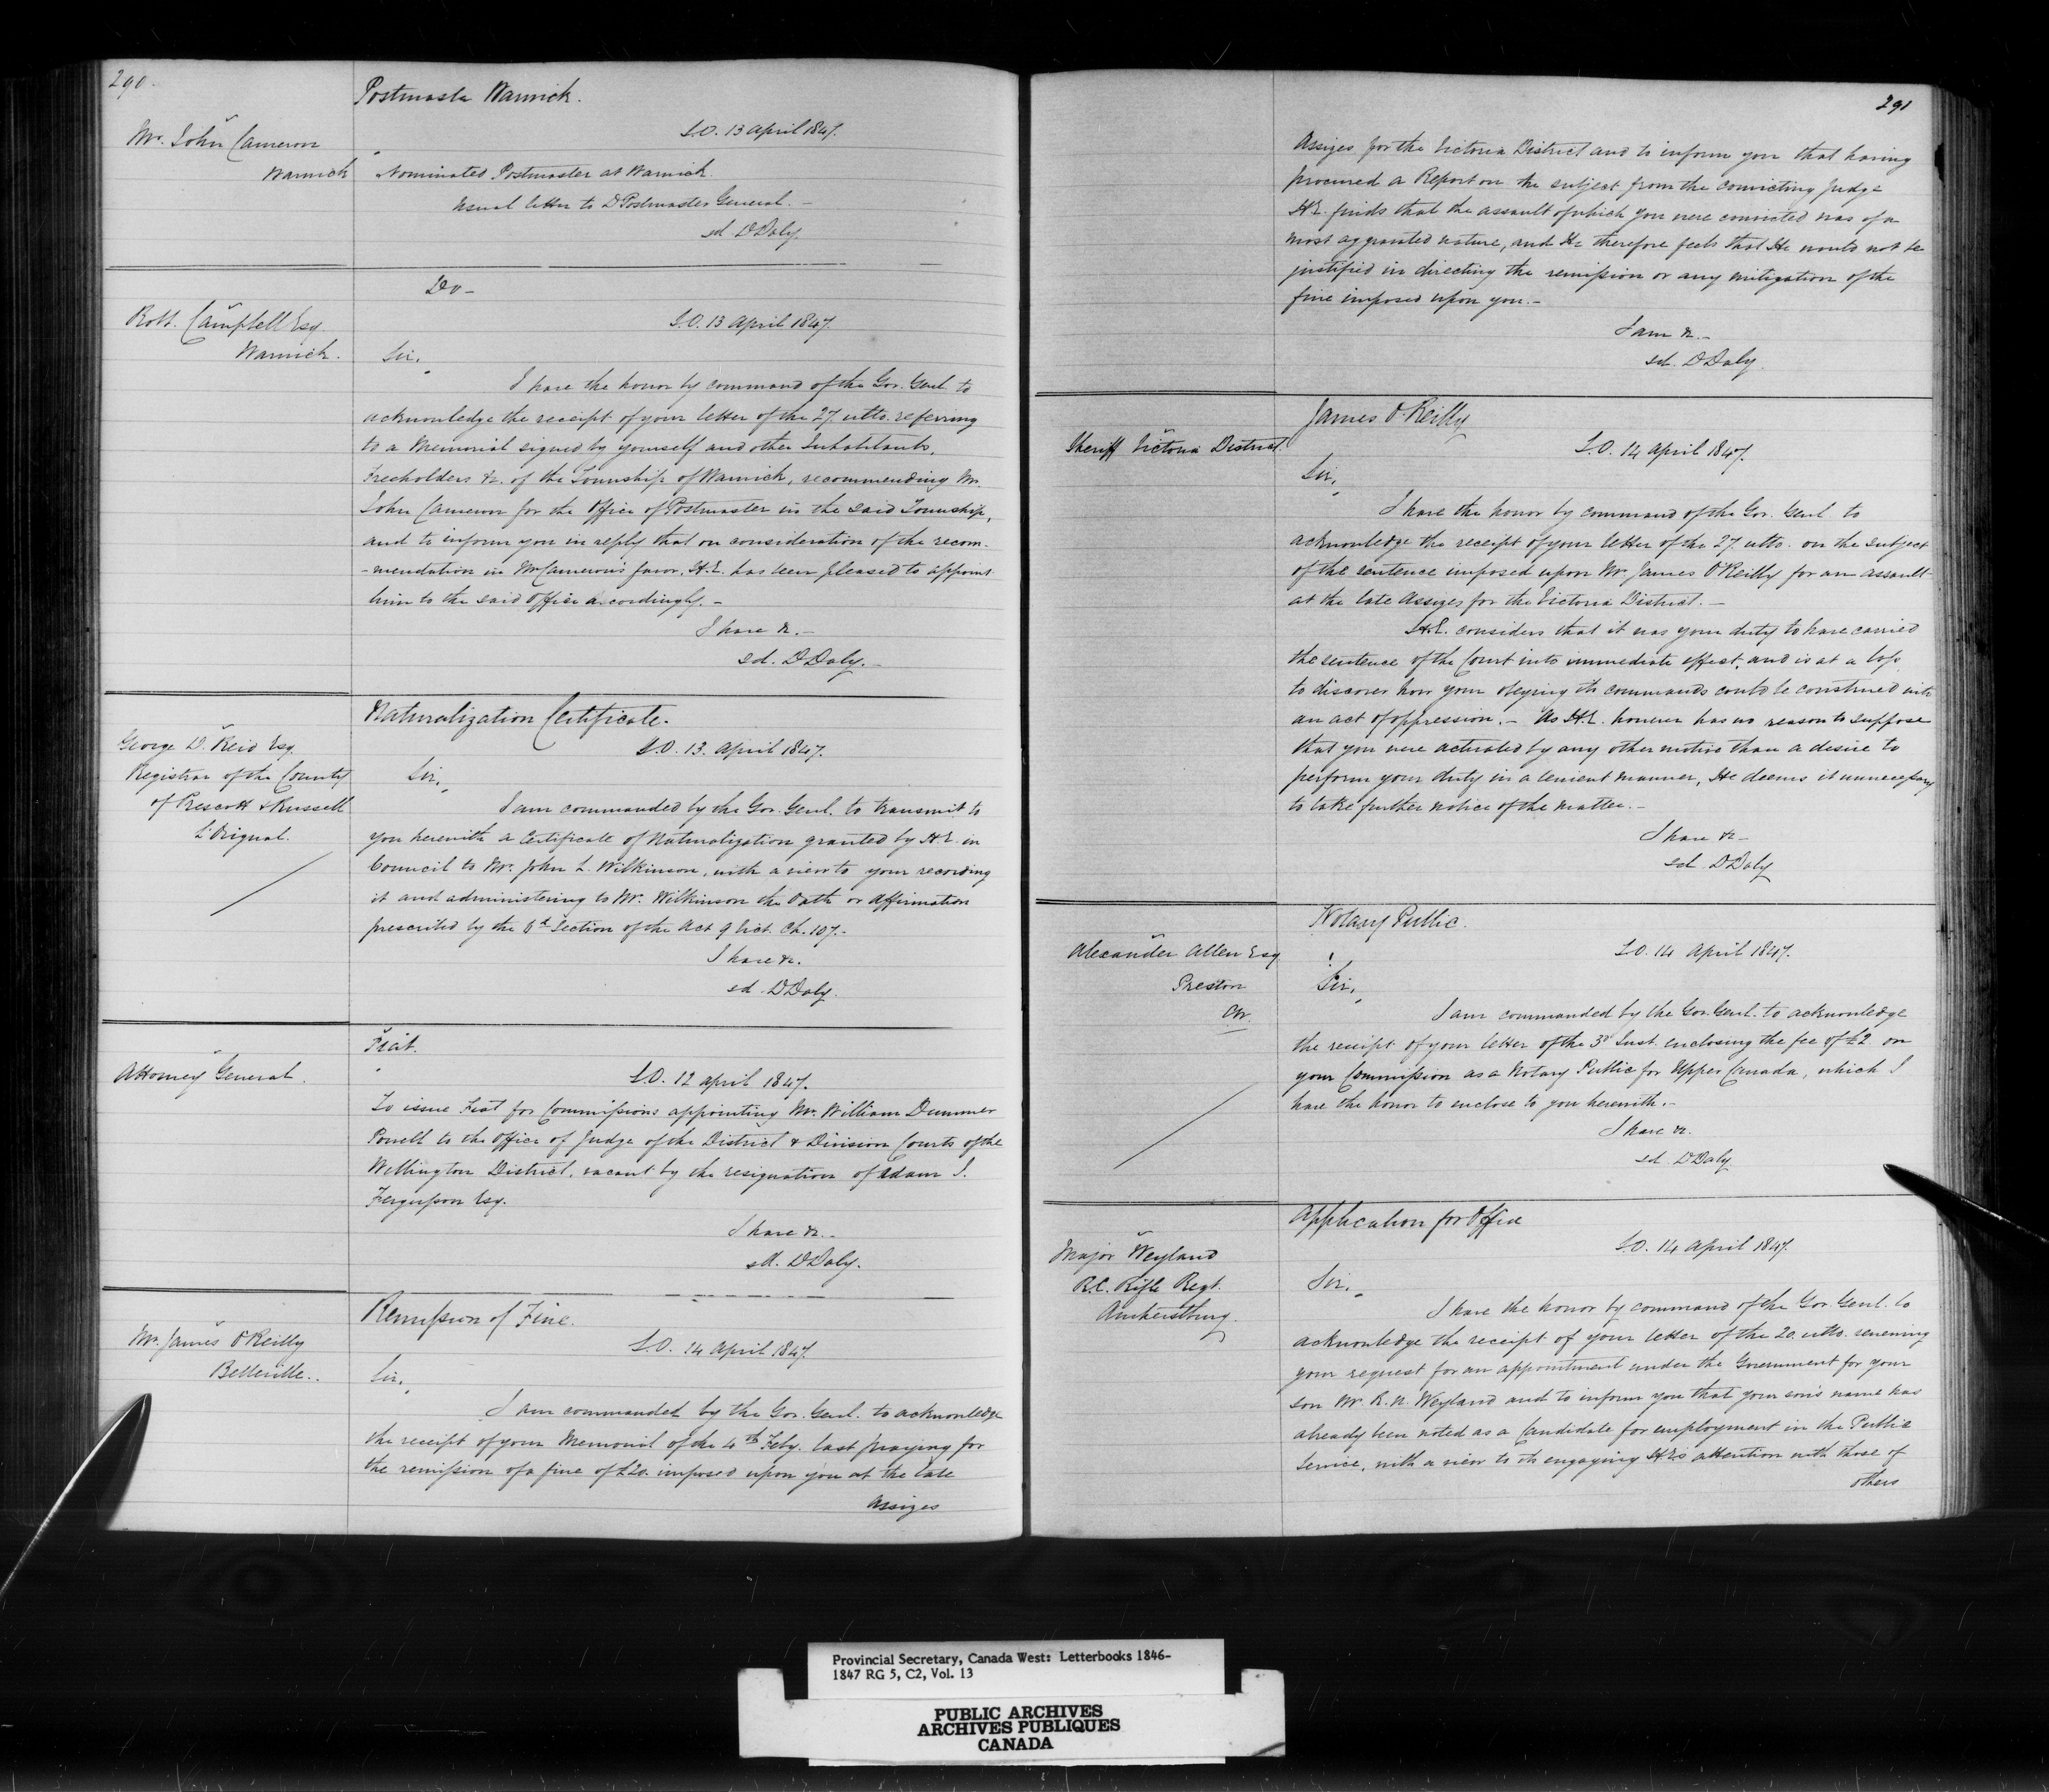 290.
Postmaster Warwick.
Mr. John Cameron
Warwick
S.O. 13 April 1847.
Nominated Postmaster at Warwick
usual letter to D Postmaster General. -
sd DDaly.
Do -
Robt. Campbell Esq
Warwick.
S.O. 13 April 1847.
Sir,
I have the honor by command of the Gov. Genl. to
acknowledge the receipt of your letter of the 27 ulto. referring
to a Memorial signed by yourself and other Inhabitants,
Freeholders &c. of the Township of Warwick, recommending Mr.
John Cameron for the Office of Postmaster in the said Township,
and to inform you in reply that on consideration of the recom-
-mendation in Mr Cameron's favor, H.E. has been pleased to appoint
him to the said Office accordingly. -
I have &c. -
sd. DDaly. -
Naturalization Certificate.
George D. Reid Esq.
Registrar of the County
of Prescott & Russell
L'Orignal.
S.O. 13. April 1847.
Sir,
I am commanded by the Gov. Genl. to transmit to
you herewith a Certificate of Naturalization granted by H.E. in
Council to Mr. John L. Wilkinson, with a view to your recording
it and administering to Mr. Wilkinson the Oath or Affirmation
prescribed by the Section of the Act 9 Vict. Ch. 107. -
I have &c.
sd. DDaly.
Fiat.
Attorney General.
S.O. 12 April 1847.
To issue Fiat for Commissions appointing Mr. William Dummer
Powell to the Office of Judge of the District & Division Courts of the
Wellington District, vacant by the resignation of Adam J.
Fergusson Esq.
I have &c. -
sd. DDaly.
Remission of Fine.
Mr. James O'Reilly
Belleville..
S.O. 14 April 1847.
Sir,
I am commanded by the Gov. Genl. to acknowledge
the receipt of your Memorial of the 4th Feby. last praying for
the remission of a fine of £20. imposed upon you at the late
Assizes
291
Assizes for the Victoria District and to inform you that having
procured a Report on the subject from the convicting Judge
H.E. finds that the assault of which you were convicted was of a
most aggravated nature, and He therefore feels that He would not be
justified in directing the remission or any mitigation of the
fine imposed upon you. -
I am &c. -
sd. DDaly.
James O'Reilly
Sheriff Victoria District.
S.O. 14 April 1847.
Sir,
I have the honor by command of the Gov. Genl. to
acknowledge the receipt of your letter of the 27 ulto. on the subject
of the sentence imposed upon Mr James O'Reilly for an assault
at the late Assizes for the Victoria District. -
H.E. considers that it was your duty to have carried
the sentence of the Court into immediate effect, and is at a loss
to discover how your obeying its commands could be construed into
an act of oppression. - As H.E. however has no reason to suppose
that you were actuated by any other motive than a desire to
perform your duty in a lenient manner, He deems it unnecessary
to take further notice of the matter. -
I have &c -
sd. DDaly
Notary Public.
Alexander Allen Esq
Preston
CW.
S.O. 14 April 1847.
Sir,
I am commanded by the Gov. Genl. to acknowledge
the receipt of your letter of the 3d Inst. enclosing the fee of £2 on
your Commission as a Notary Public for Upper Canada, which I
have the honor to enclose to you herewith. -
I have &c.
sd. DDaly
Application for Office
Major Weyland
R.C. Rifle Regt.
Amherstburg.
S.O. 14 April 1847.
Sir,
I have the honor by command of the Gov. Genl. to
acknowledge the receipt of your letter of the 20. ulto. renewing
your request for an appointment under the Government for your
son Mr. R.N. Weyland and to inform you that your son's name has
already been noted as a Candidate for employment in the Public
Service, with a view to its engaging H.E's attention with those of
others
Provincial Secretary, Canada West: Letterbooks 1846-
1847 RG 5, C2, Vol. 13
PUBLIC ARCHIVES
ARCHIVES PUBLIQUES
CANADA